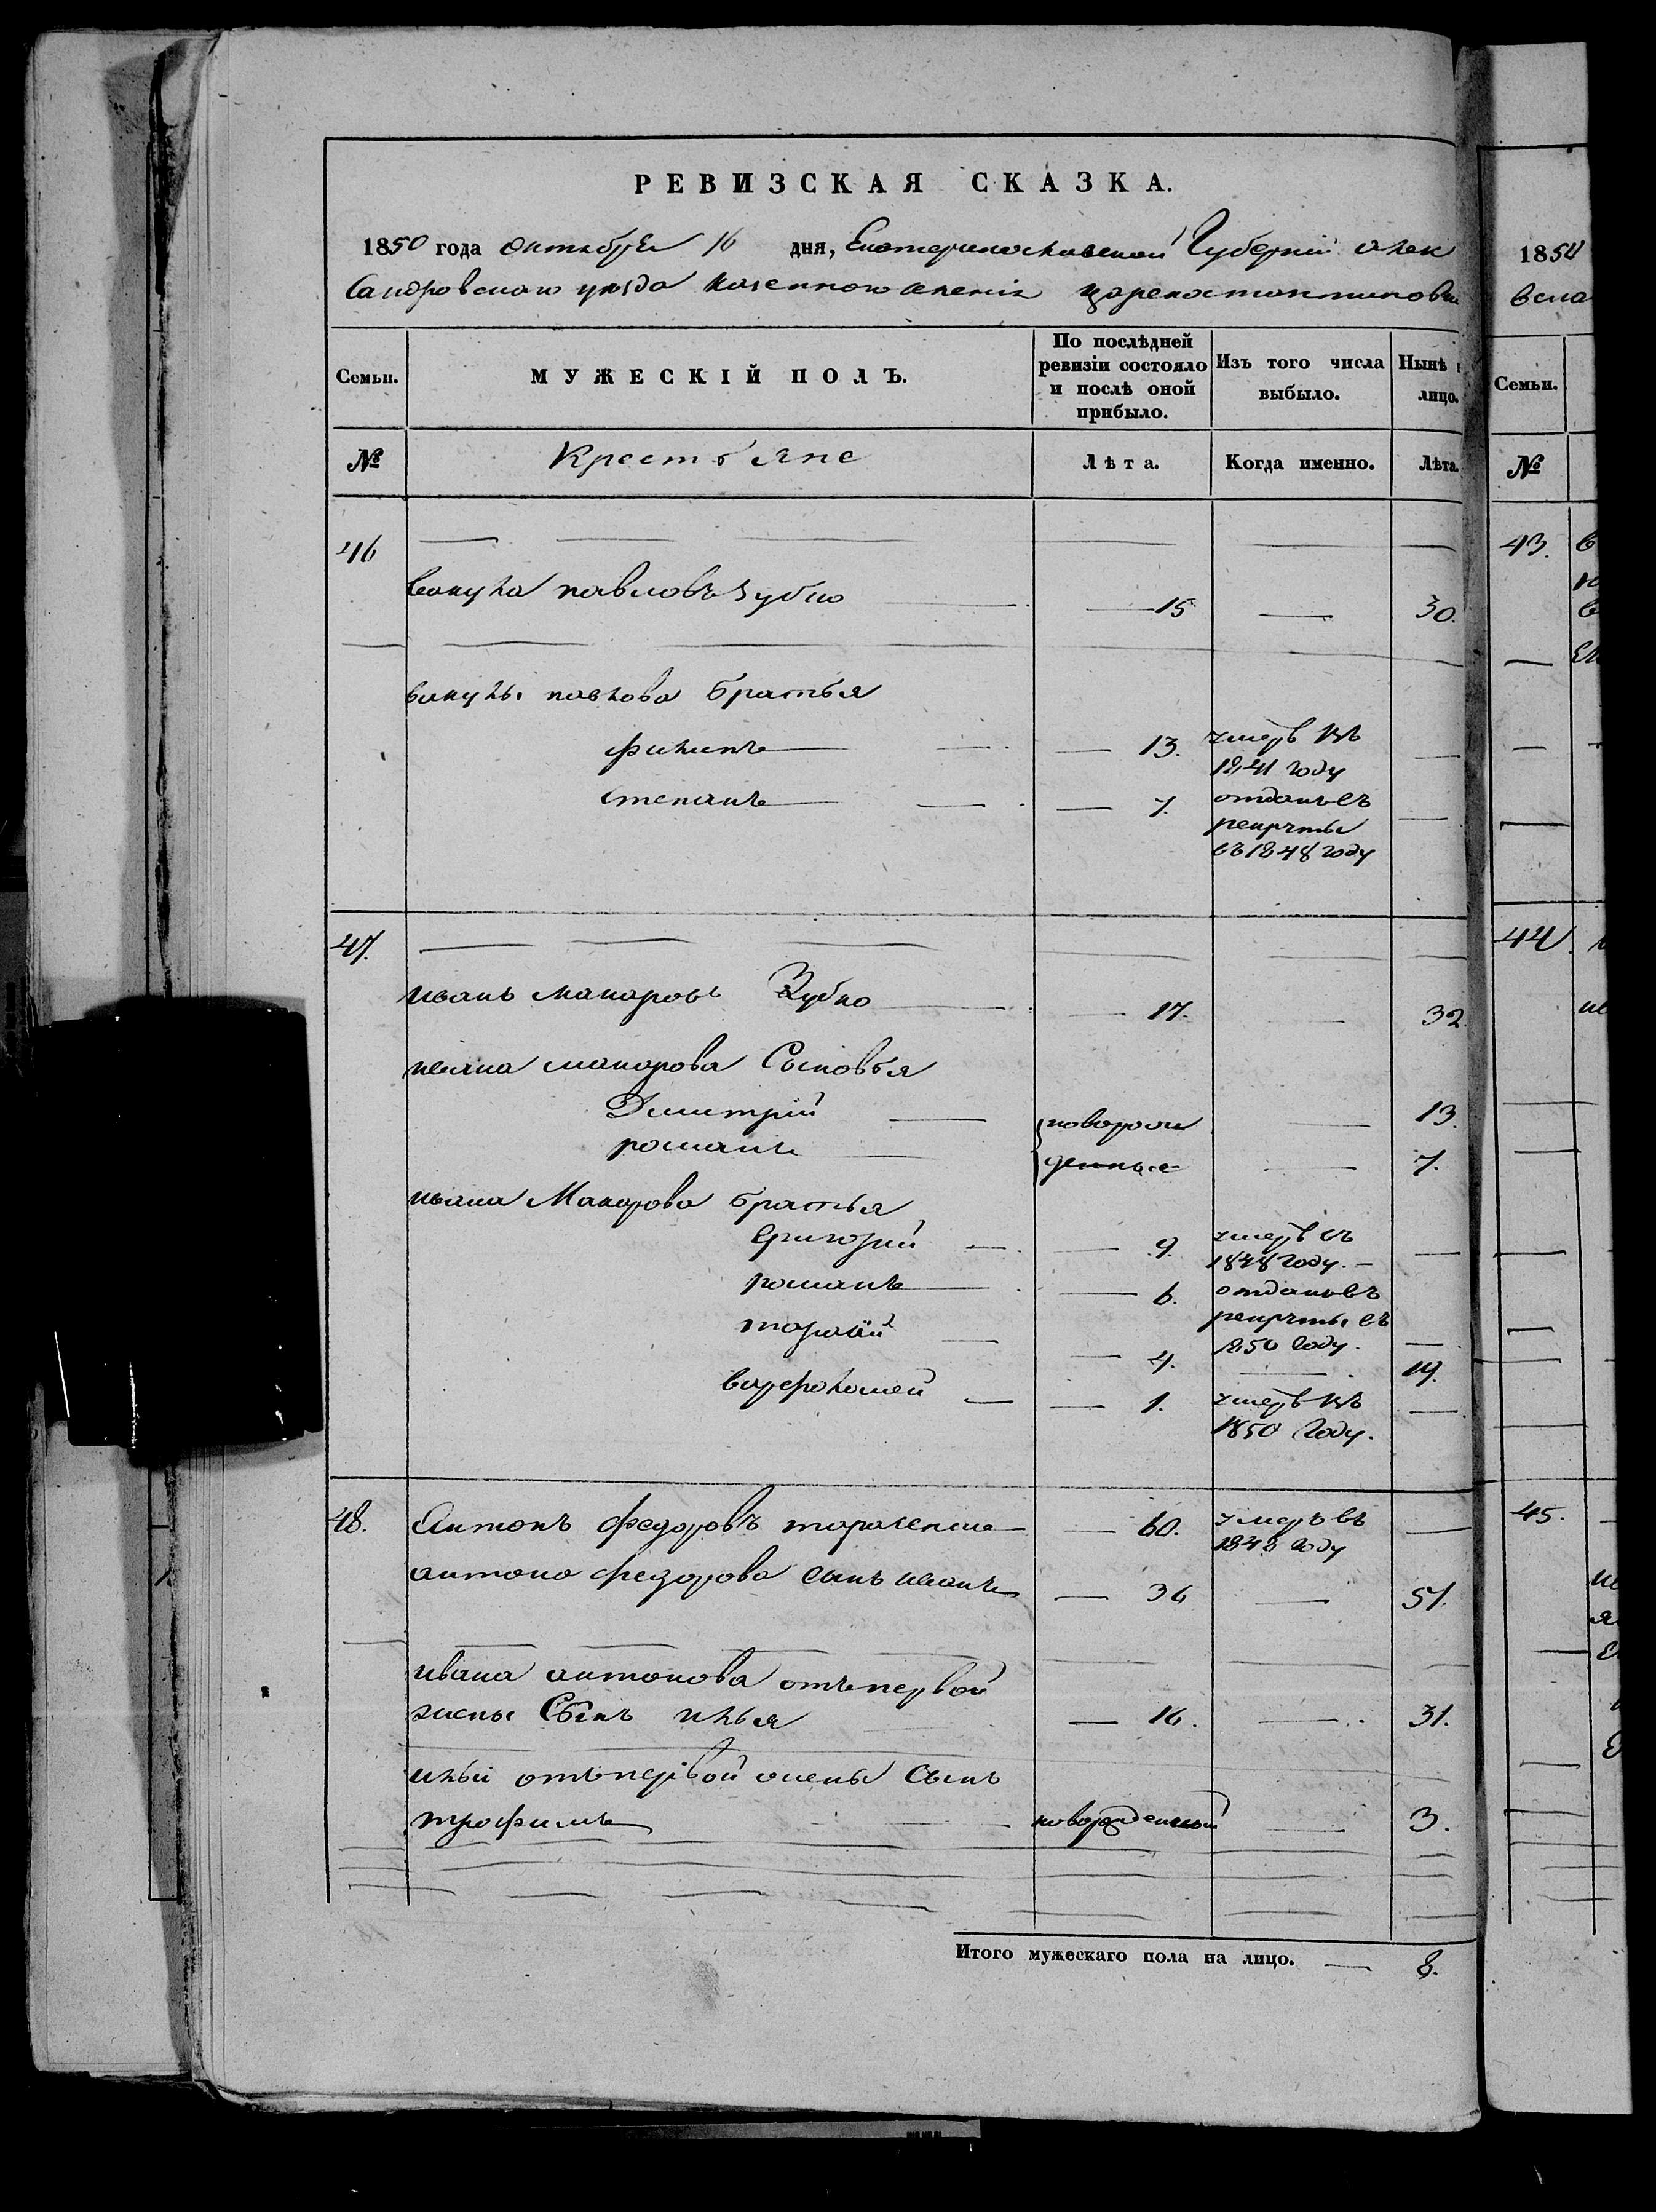 РЕВИЗСКАЯ СКАЗКА.
1850 года октября 16 дня, Екатеринославской Губерніи алек
сандровскаго уезда казенного селенія цареконстантиновк
Семьи. МУЖЕСКІЙ ПОЛЪ. По послѣдней ревизіи состояло и послѣ оной прибыло. Изъ того числа выбыло. Нынѣ лицо.
№ Крестьяне Лѣта. Когда именно. Лѣта.
46
вакула павловъ зубко — 15 — 30.
вакулы павлова братья
филипъ — 13. умерв въ
1841 году
степанъ — 7. отданъ въ
рекруты
въ 1848 году
47.
иванъ макаровъ Зубко — 17. — 32.
ивана макарова Сыновья
Димитрій — новорож — 13.
романъ — денные — 7.
ивана Макарова братья
Григорій — 9. умерв въ
1848 году. —
романъ — 6. отданъ въ
рекруты въ
1850 году. —
тарасій — 4. — 19.
варфоломей — 1. умерв въ
1850 году.
48. Антонъ федоровъ тарасенко — 60. умеръ въ
1848 году
антона федорова сынъ иванъ — 36 — 51.
ивана антонова отъ первой
жены Сынъ илья — 16. — 31.
ильи отъ первой жены Сынъ
трофимъ — новорожденный — 3.
Итого мужескаго пола на лицо. — 8.
1850
вска
Семьи.
№
43.
44.
45.